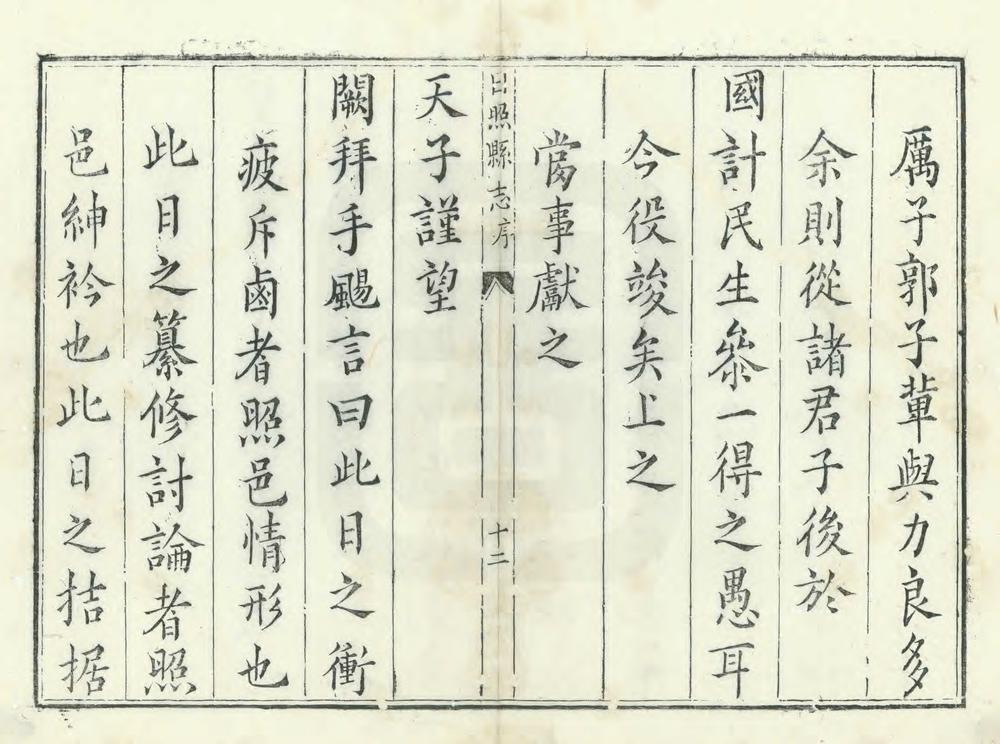 厲子郭子輩與力良多
余則從諸君子後於
國計民生叅一得之愚耳
今役竣矣上之
當事獻之
日照縣志序 十二
天子謹望
闕拜手颺言曰此日之衝
疲斥鹵者照邑情形也
此日之纂修討論者照
邑紳衿也此日之拮据